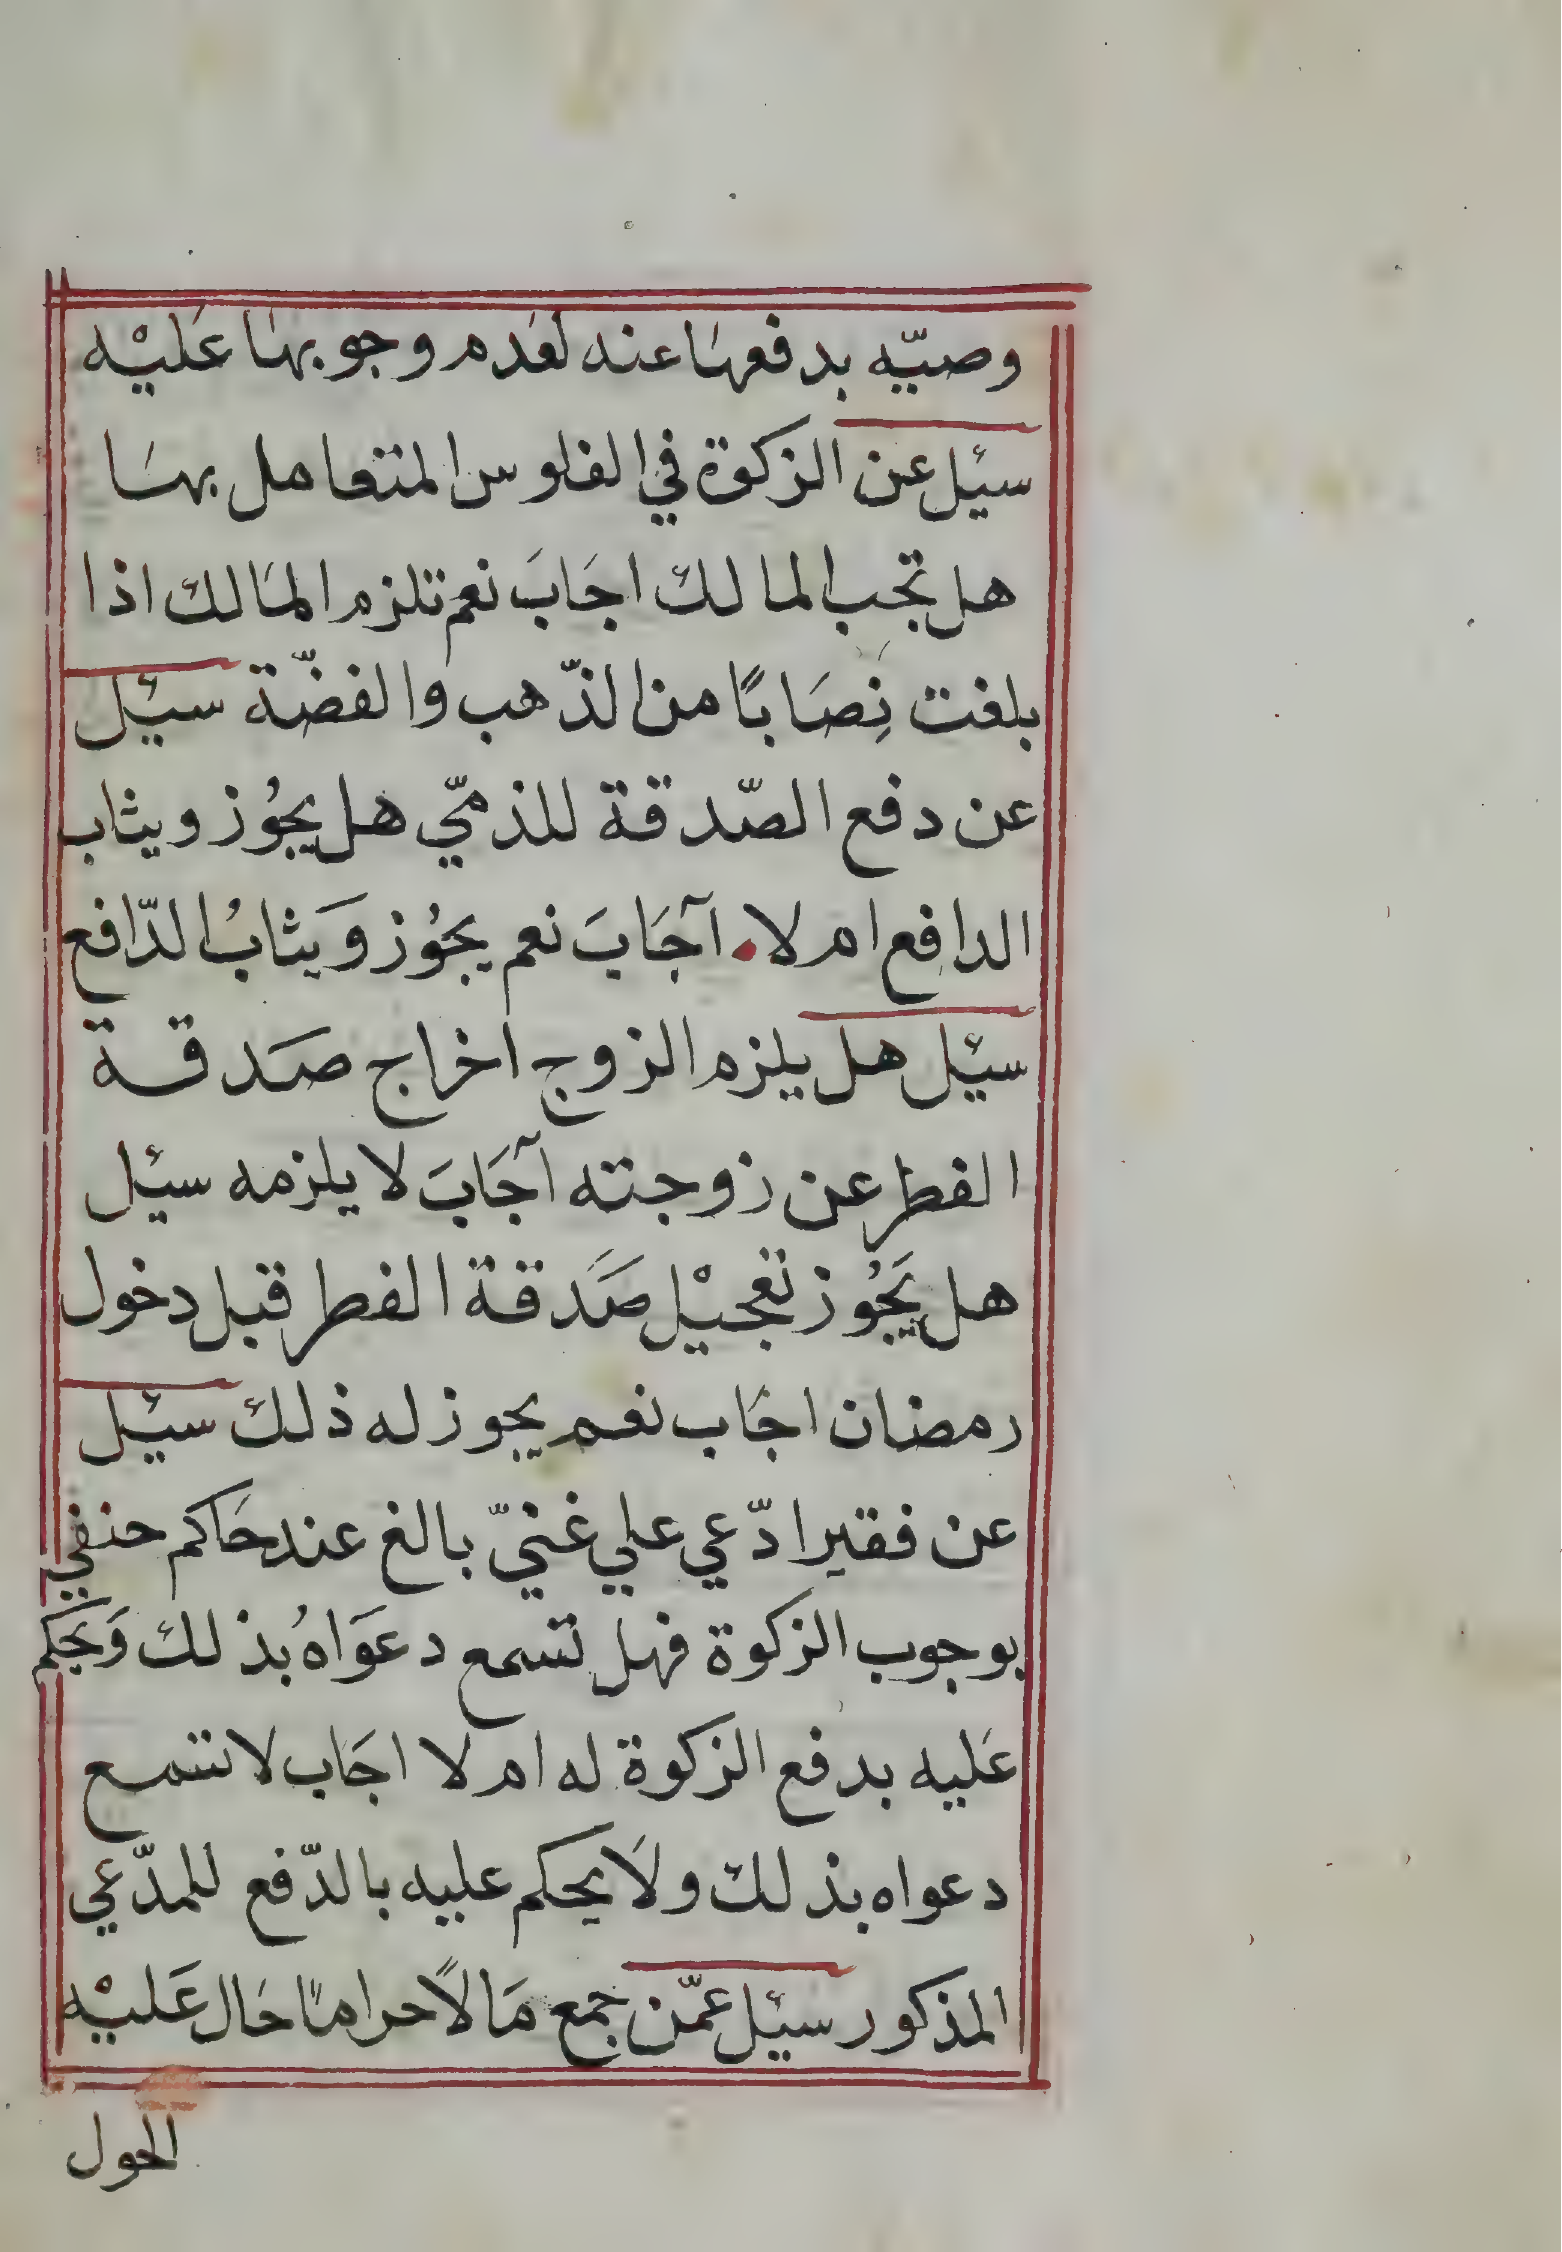 وصيّه بدفعها عنه لعدم وجوبها عَليْه
سئيل عن الزكوة في الفلوس المتعامل بها
هل تجب المالك اجَابَ نعم تلزم المَالك اذا
بلغت نِصَابًا من الذّهب والفضّة سئيل
عن دفع الصّدقة للذميّ هل يجُوز ويثاب
الدافع ام لا. آجَابَ نعم يجُوز وَيثابُ الدّافع
سئيل هل يلزم الزوج اخراج صَدقة
الفطر عن زوجته آجَابَ لا يلزمه سئيل
هل يَجُوز تعجيْل صَدقة الفطر قبل دخول
رمضان اجَاب نعم يجوز له ذلك سئيل
عن فقير ادّعي علي غنيّ بالغ عند حَاكم حنفي
بوجوب الزكوة فهل تسمع دعوَاهُ بذلك وَيحَكم
عَليه بدفع الزكوة له ام لا اجَاب لا تسمع
دعواه بذلك ولَا يحكم عليه بالدّفع للمدّعي
المذكور سئيل عمّن جمع مَالاً حرامًا حَال عَليْه
الحول